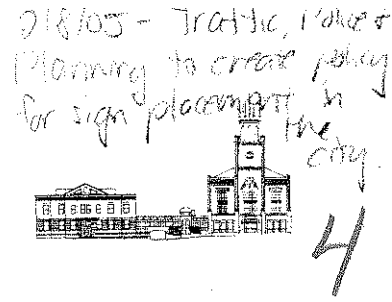 2/8/05 - Traffic, Police &
Planning to create policy
for sign placement in
the
city.
4